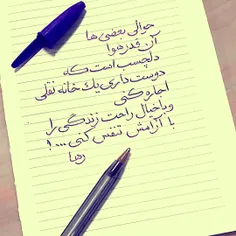 حوالی بعضی ها
آن قدر هوا
دلچسب است که
دوست داری یک خانه نقلی
اجاره کنی
و با خیال راحت زندگی را
با آرامش تنفس کنی ....!
رهبا